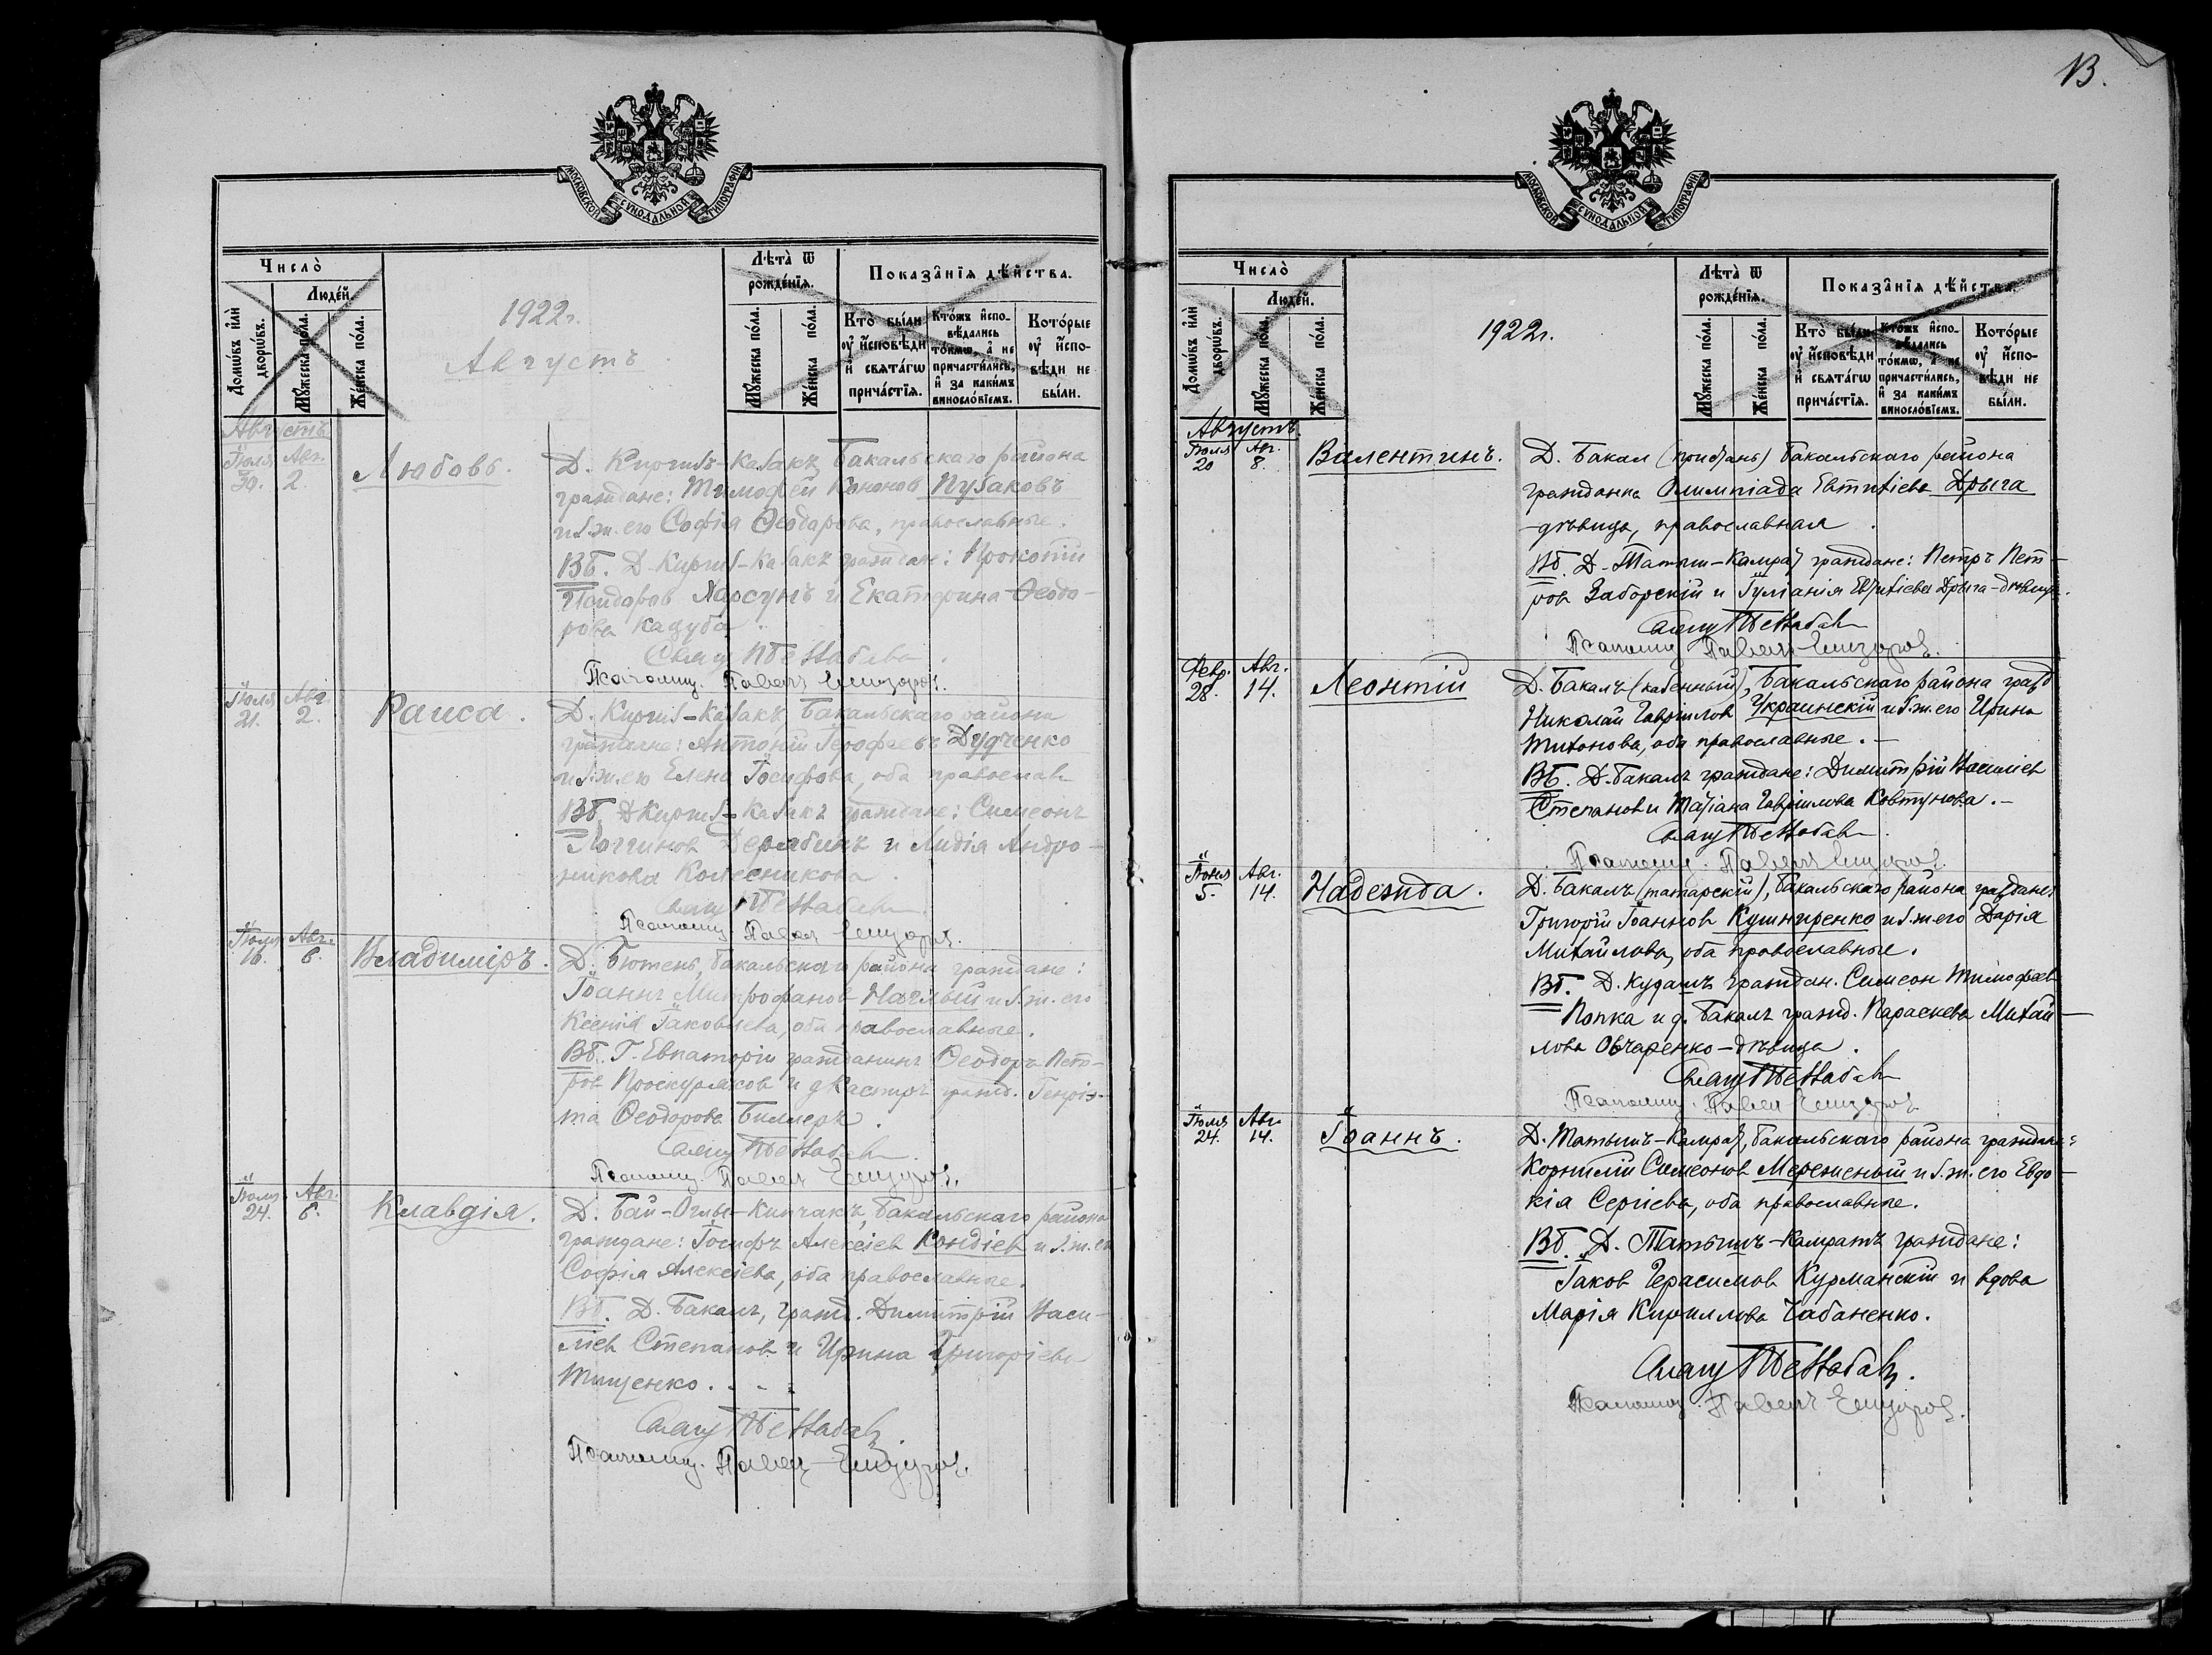 МОСКОВСКОЙ СѴНОДАЛЬНОЙ ТИПОГРАФІИ
Число̀
Люде́й.
Домѡ́въ и҆лѝ дворѡ́въ.
Мꙋ́жеска по́ла.
Же́нска по́ла.
1922 г.
Августъ
Лѣ́та ѿ рожде́нїѧ.
Мꙋ́жеска по́ла.
Же́нска по́ла.
Показа̑нїѧ дѣ́йства.
Кто̀ бы́ли ᲂу҆ и҆сповѣ́ди и҆ свѧта́гѡ прича́стїѧ.
Кто́жъ и҆спо-
вѣ́дались
то́кмѡ, а҆ не
причасти́лись,
и҆ за каки́мъ
винослові́емъ.
Кото́рые
ᲂу҆ и҆спо-
вѣ́ди не
бы́ли.
Августъ
Іюля 30. Авг. 2. Любовь.
Д. Киргизъ-Казакъ, Бакальскаго района
граждане: Тимофей Кононов Пузаковъ
и з.ж. его Софія Ѳеодорова, православные.
ВБ. Д. Киргиз-Казакъ граждане: Прокопій
Исидоров Ларсунъ и Екатерина Ѳеодо-
рова Кадуба
Псаломщ. Павелъ
Іюля 21. Авг. 2. Раиса.
Д. Киргиз-Казакъ, Бакальскаго района
граждане: Антоній Іерофеевъ Дудченко
и з.ж. его Елена Іосифова, оба православ
ВБ. Д Киргиз-Казакъ граждане: Симеонъ
Логгинов Дерябинъ и Лидія Андро-
никова Колесникова.
Псаломщ. Павел
Іюля 16. Авг. 6. Владиміръ.
Д. Бютень, Бакальскаго района граждане:
Іоаннъ Митрофанов Наглый и з.ж. его
Ксенія Іаковлева, оба православные.
ВБ. Г. Евпаторіи гражданинъ Ѳеодоръ Пет-
ров Проскуряков и д гражд. Генріэ-
та Ѳеодорова Биллеръ.
Псаломщ. Павел
Іюля 24. Авг. 6. Клавдія.
Д. Бай-Оглы-Кипчакъ, Бакальскаго района
граждане: Іосифъ Алексіев Кондіев и з.ж. его
Софія Алексіева, оба православные.
ВБ. Д. Бакалъ, гражд. Димитрій Васи-
ліев Степанов и Ирина Григоріева
Тищенко.
Псаломщ. Павел
13.
МОСКОВСКОЙ СѴНОДАЛЬНОЙ ТИПОГРАФІИ
Число̀
Люде́й.
Домѡ́въ и҆лѝ дворѡ́въ.
Мꙋ́жеска по́ла.
Же́нска по́ла.
1922 г.
Лѣ́та ѿ рожде́нїѧ.
Мꙋ́жеска по́ла.
Же́нска по́ла.
Показа̑нїѧ дѣ́йства.
Кто̀ бы́ли ᲂу҆ и҆сповѣ́ди и҆ свѧта́гѡ прича́стїѧ.
Кто́жъ и҆спо-
вѣ́дались
то́кмѡ, а҆ не
причасти́лись,
и҆ за каки́мъ
винослові́емъ.
Кото́рые
ᲂу҆ и҆спо-
вѣ́ди не
бы́ли.
Августъ.
Іюля 20 Авг. 8. Валентинъ.
Д. Бакал (пристань) Бакальскаго района
гражданка Олимпіада Евтихіева Дрыга
-дѣвица, православная.
ВБ. Д-Татыш-Камраз граждане: Петръ Пет-
ров Заборскій и Іуліанія Евтихіева Дрыга-дѣвица.
Псаломщ Павелъ
Февр. 28. Авг. 14. Леонтій
Д. Бакалъ (казенный), Бакальскаго района гражд
Николай Гавріилов Украинскій и з.ж. его Ирина
Тихонова, оба православные.-
ВБ. Д. Бакалъ граждане: Димитрій Василіев
Степанов и Татіана Гавріилова Ковтунова.-
Псаломщ. Павелъ
Іюня 5. Авг. 14. Надежда.
Д. Бакалъ (татарскій), Бакальскаго района граждане
Григорій Іоаннов Кушниренко и з.ж. его Дарія
Михайлова, оба православные.
ВБ. Д. Кудашъ граждан. Симеон Тимофеев
Попка и д. Бакалъ гражд. Параскева Михай-
лова Овчаренко-дѣвица.
Псаломщ. Павел
Іюля 24. Авг. 14. Іоаннъ.
Д. Татышъ-Камраз, Бакальскаго района граждане:
Корнилій Симеонов Мереженый и з.ж. его Евдо-
кія Сергіева, оба православные.
ВБ. Д. Татышъ-Камратъ граждане:
Іаков Герасимов Курманскій и вдова
Марія Кириллова Чабаненко.
Псаломщ. Павелъ